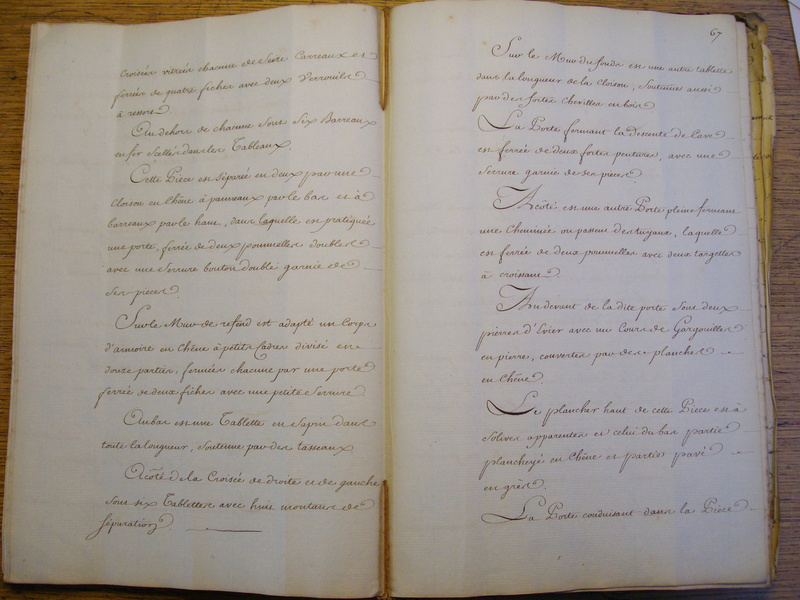 croisées vitrées chacune de Seize Carreaux et
ferrées de quatre fiches avec deux Verrouils
à ressort
Au dehors de chacune sont Six Barreaux
en fer Scellés dans les Tableaux.
Cette Piece est Séparée en deux par une
cloison en Chêne à panneaux par le bas et à
barreaux par le haut, dans laquelle est pratiquée
une porte, ferrée de deux poumelles doubles
avec une Serrure bouton double garnie de
Ses pieces
Sur le Mur de refend est adapté un Corps
d'armoire en Chêne à petits Cadres divisé en
douze parties, fermées chacune par une porte
ferrée de deux fiches avec une petite Serrure
Au bas est une Tablette en Sapin dans
toute la longueur, Soutenue par des tasseaux
A côté de la Croisée de droite et de gauche
sont six Tablettes avec huit montures de
Séparation
67
Sur le Mur du fonds est une autre tablette
dans la longueur de la cloison, Soutenue aussi
par des fortes Chevilles en bois
La Porte fermant la descente de Cave
est ferrée de deux fortes pentures, avec une
Serrure garnie de ses pieces
A côté est une autre Porte pleine fermant
une Cheminée ou passent des tuyaux, laquelle
est ferrée de deux poumelles avec deux targettes
à croissant
Au devant de la dite porte sont deux
pierres d'Evier avec un Cours de Gargouilles
en pierre, couvertes par des planches
en Chêne
Le plancher haut de cette Piece est à
Solives apparentes et celui du bas partie
plancheyé en Chêne et partie pavé
en grès
La Porte conduisant dans la Piece